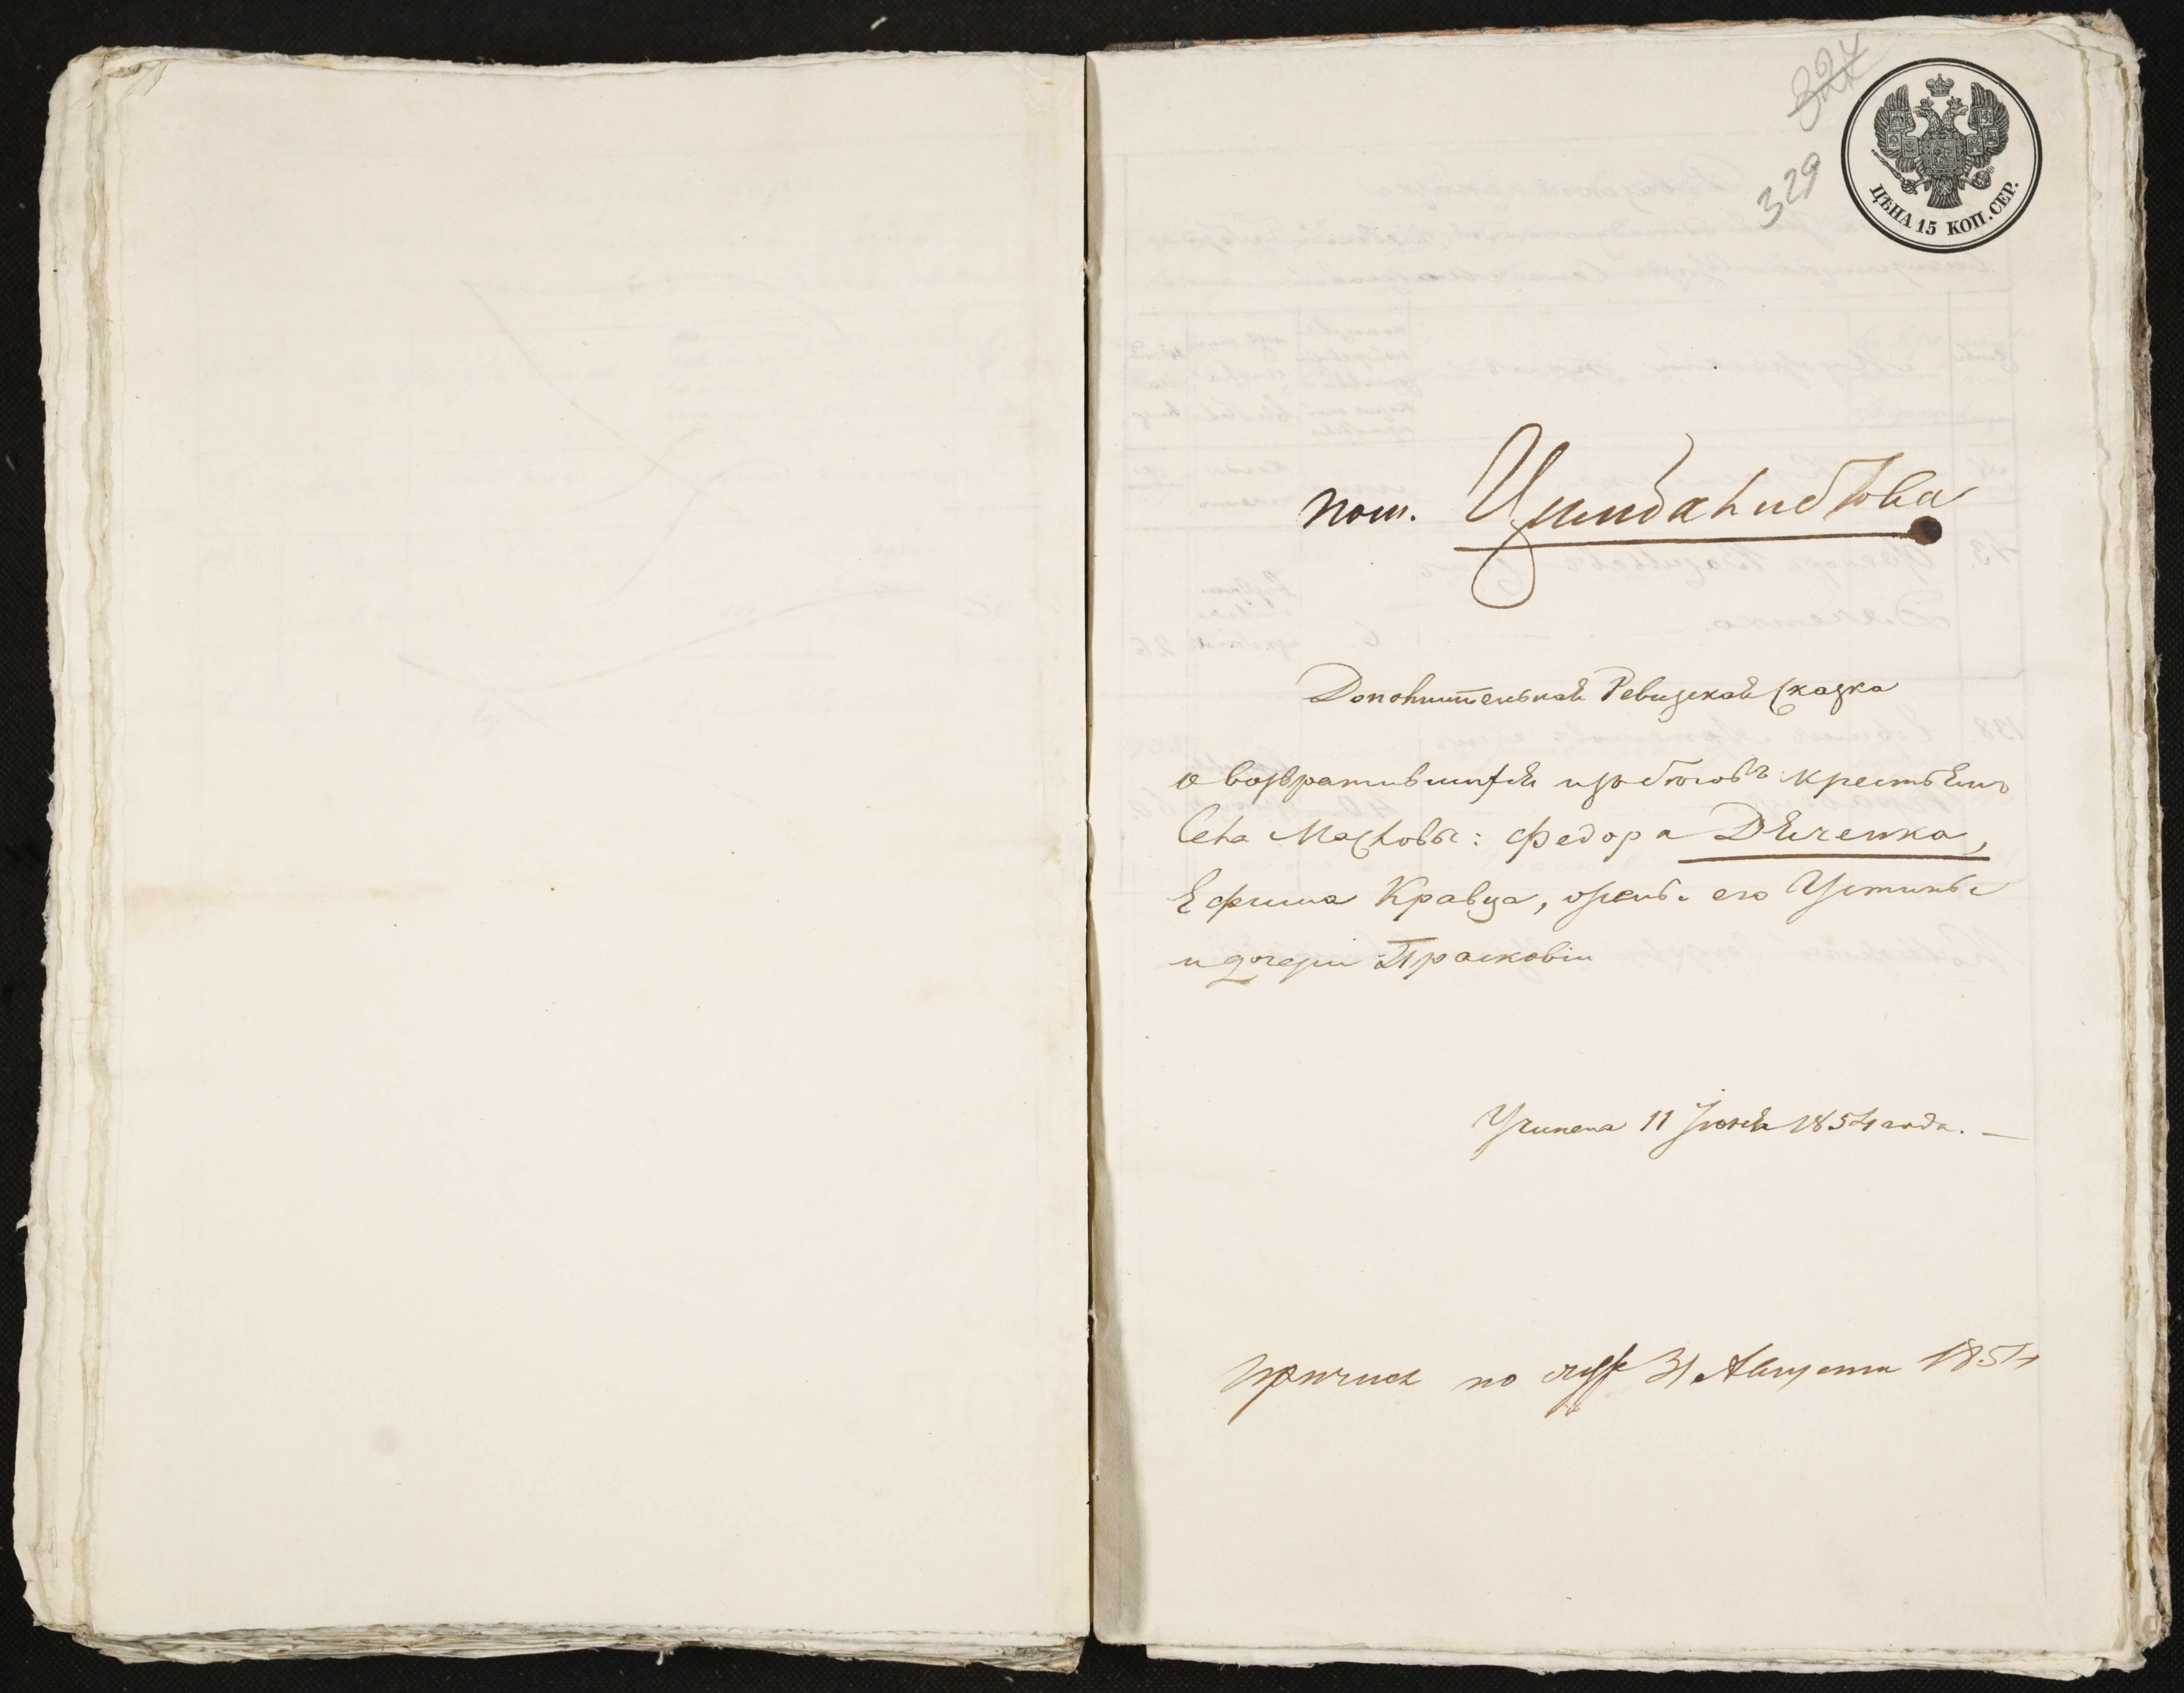 327
329
ЦѢНА 15 КОП. СЕР.
пом.
Дополнительная Ревизская Сказка
о возвратившихся изъ бѣговъ крестьянъ
Села Масловы: Федора Дяченка,
Ефима Кравца, жены его Устины
и дочери Прасковіи
Учинена 11 Іюня 1854 года. —
по 31 Августа 1854